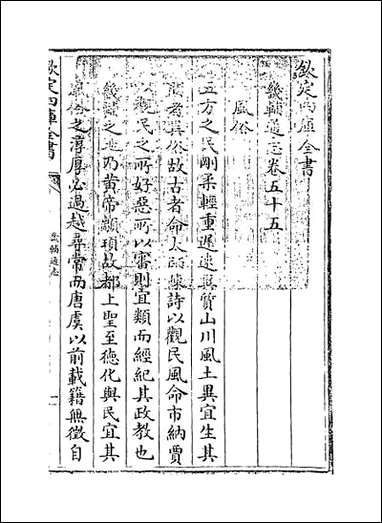 欽定四庫全書
畿輔通志卷五十五
風俗
五方之民剛柔輕重遲速異質山川風土異宜生其
間者異俗故古者命太師陳詩以觀民風命市納賈
以觀民之所好惡所以審則宜類而經紀其政教也
畿輔之地乃黄帝顓頊故都上聖至德化與民宜其
風俗之淳厚必過越尋常而唐虞以前載籍無徵自
欽定四庫全書
畿輔通志
一